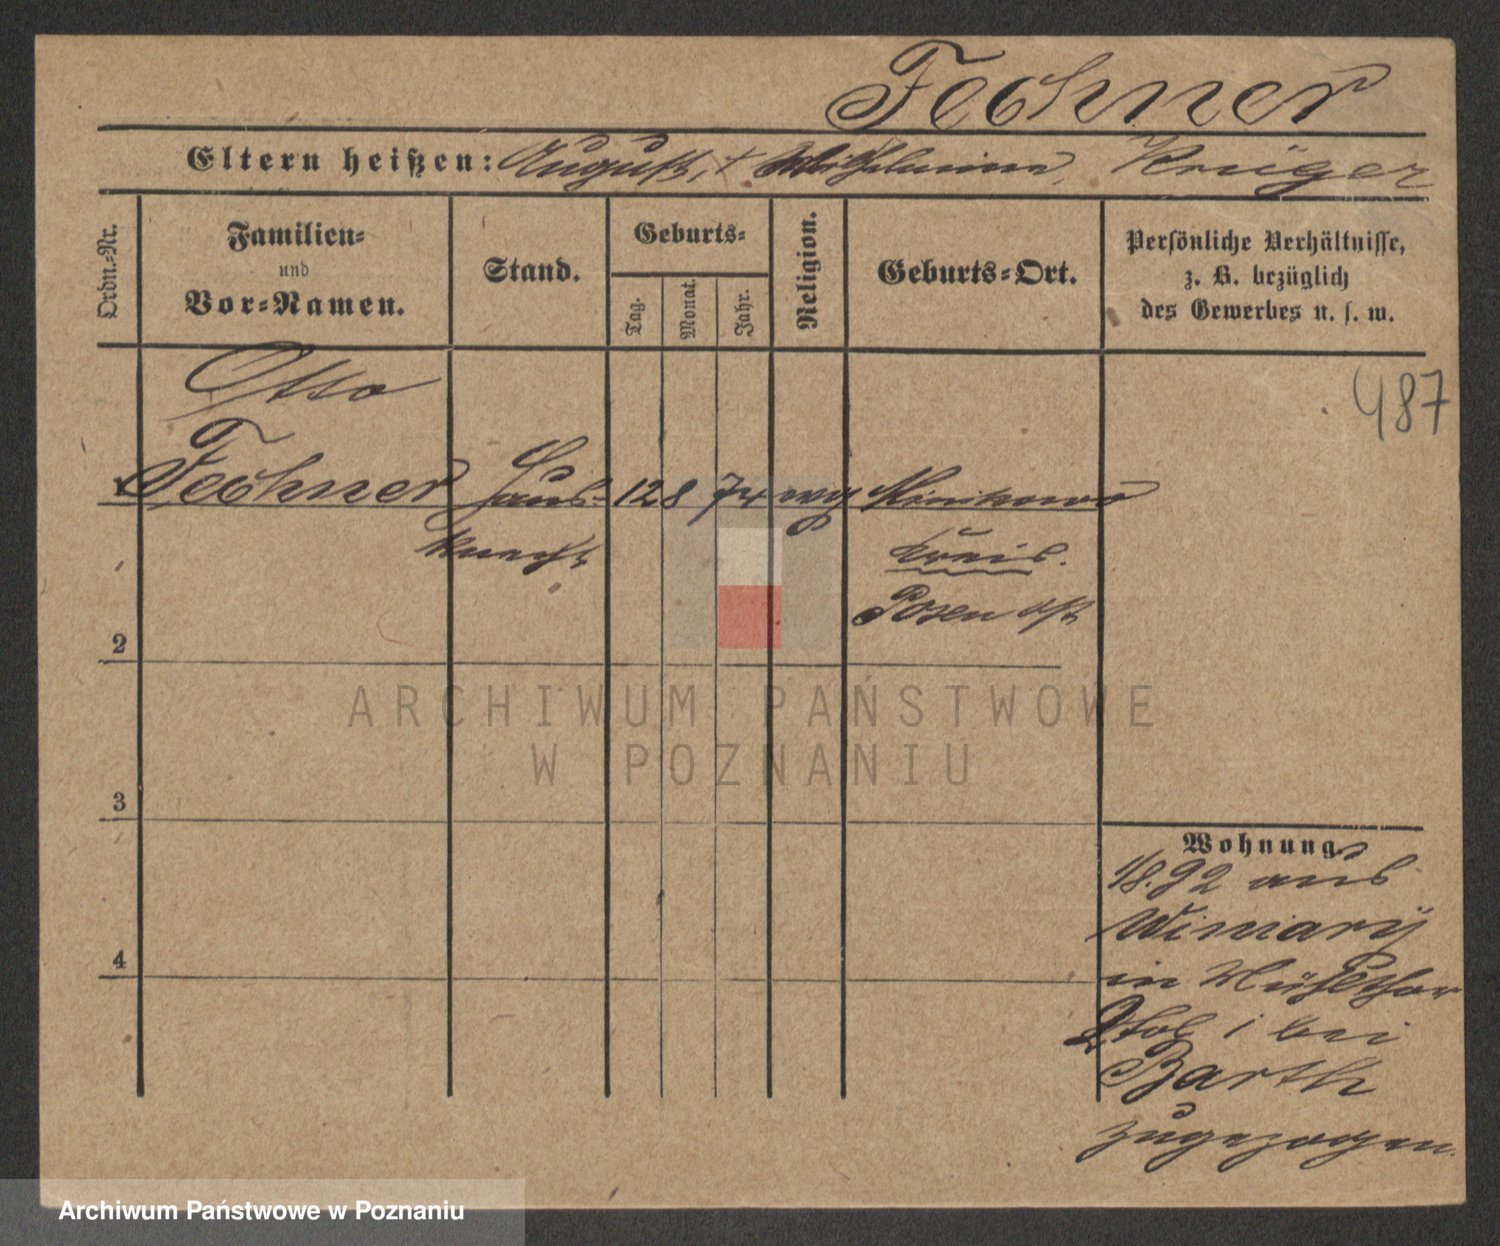 Fechner
Eltern heißen: August, + Wilhelmine, Krüger
Ordn.-Nr.
Familien-
und
Vor-Namen.
Stand.
Geburts-
Tag.
Monat.
Jahr.
Religion.
Geburts-Ort.
Persönliche Verhältnisse,
z. B. bezüglich
des Gewerbes u. s. w.
487
Otto
1 Fechner Haus- 12 8 74 evg Minikowo
knecht
Kreis.
Posen Ost
2
3
4
Wohnung.
1/8.92 aus
Winiary
in Mühlthor
bei
Barth
zugezogen.
ARCHIWUM PAŃSTWOWE
W POZNANIU
Archiwum Państwowe w Poznaniu